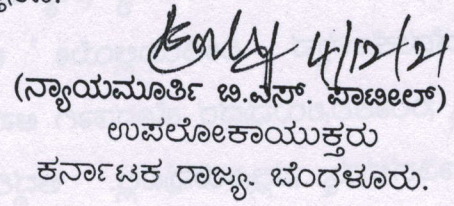 4/12/21
(ನ್ಯಾಯಮೂರ್ತಿ ಬಿ.ಎಸ್. ಪಾಟೀಲ್)
ಉಪಲೋಕಾಯುಕ್ತರು
ಕರ್ನಾಟಕ ರಾಜ್ಯ. ಬೆಂಗಳೂರು.